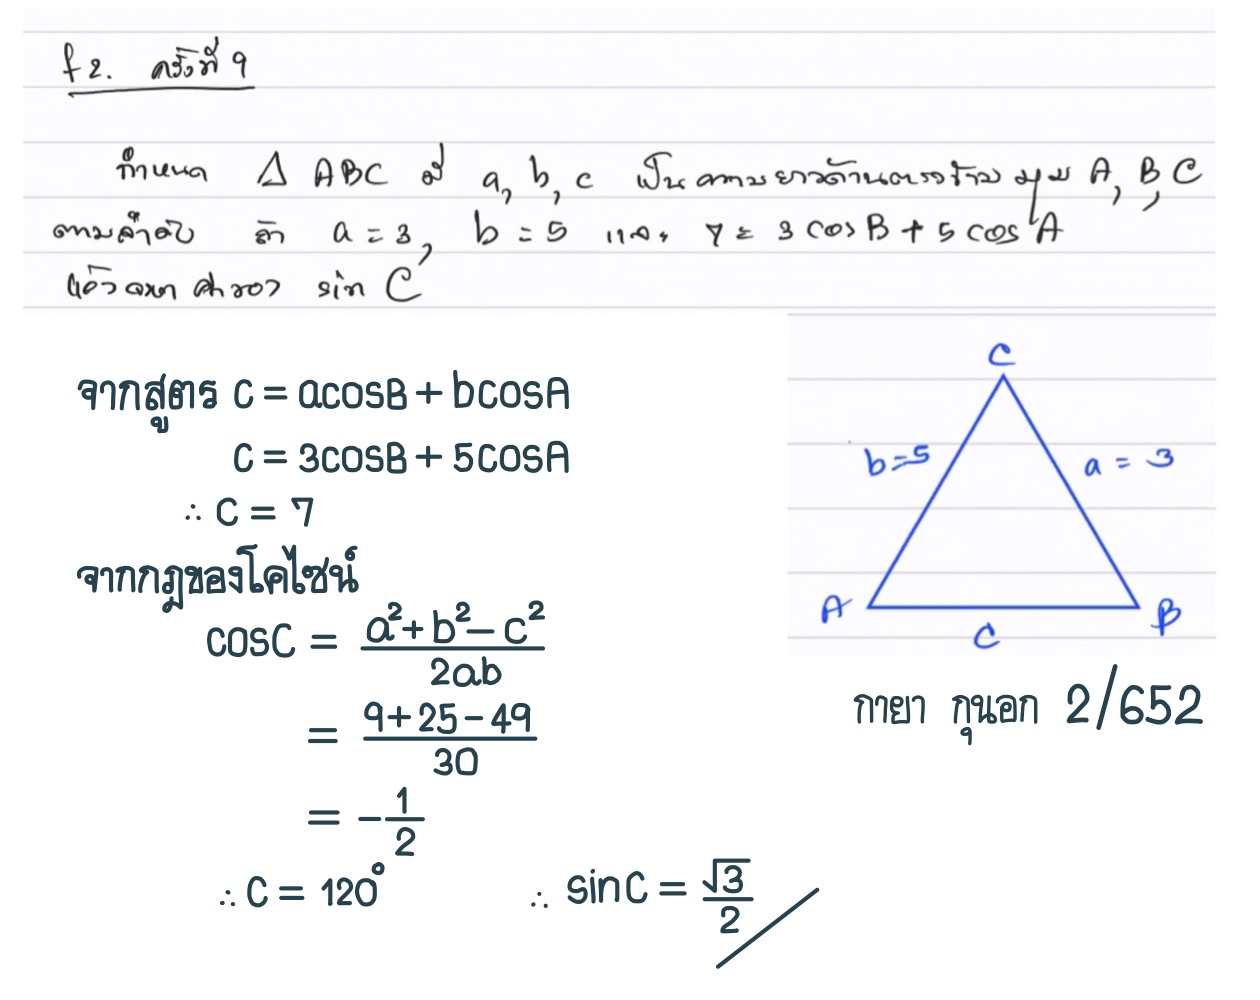 f2. ครั้งที่ 9
กำหนด △ ABC มี a, b, c เป็นความยาวด้านตรงข้ามมุม A, B, C
ตามลำดับ ถ้า a = 3, b = 5 และ 7 = 3 cos B + 5 cos A
แล้วจงหาค่าของ sin C
จากสูตร c = acosB + bcosA
c = 3cosB + 5cosA
∴ c = 7
จากกฎของโคไซน์
cosC = (a²+b²−c²)/2ab
= (9+25−49)/30
= −1/2
∴ C = 120° ∴ sinC = √3/2
C
b=5 a = 3
A B
C
กายา กุนอก 2/652